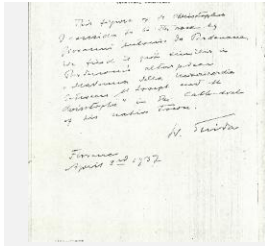 This figure of a St Christopher
I consider to be the work by
Giovanni Antonio da Pordenone.
The Child is quite similar in
Pordenone's altarpiece
"Madonna della Misericordia
between St Joseph and St
Christopher" in the Cathedral
of his native town.
W. Suida
Florence
April 2nd 1937